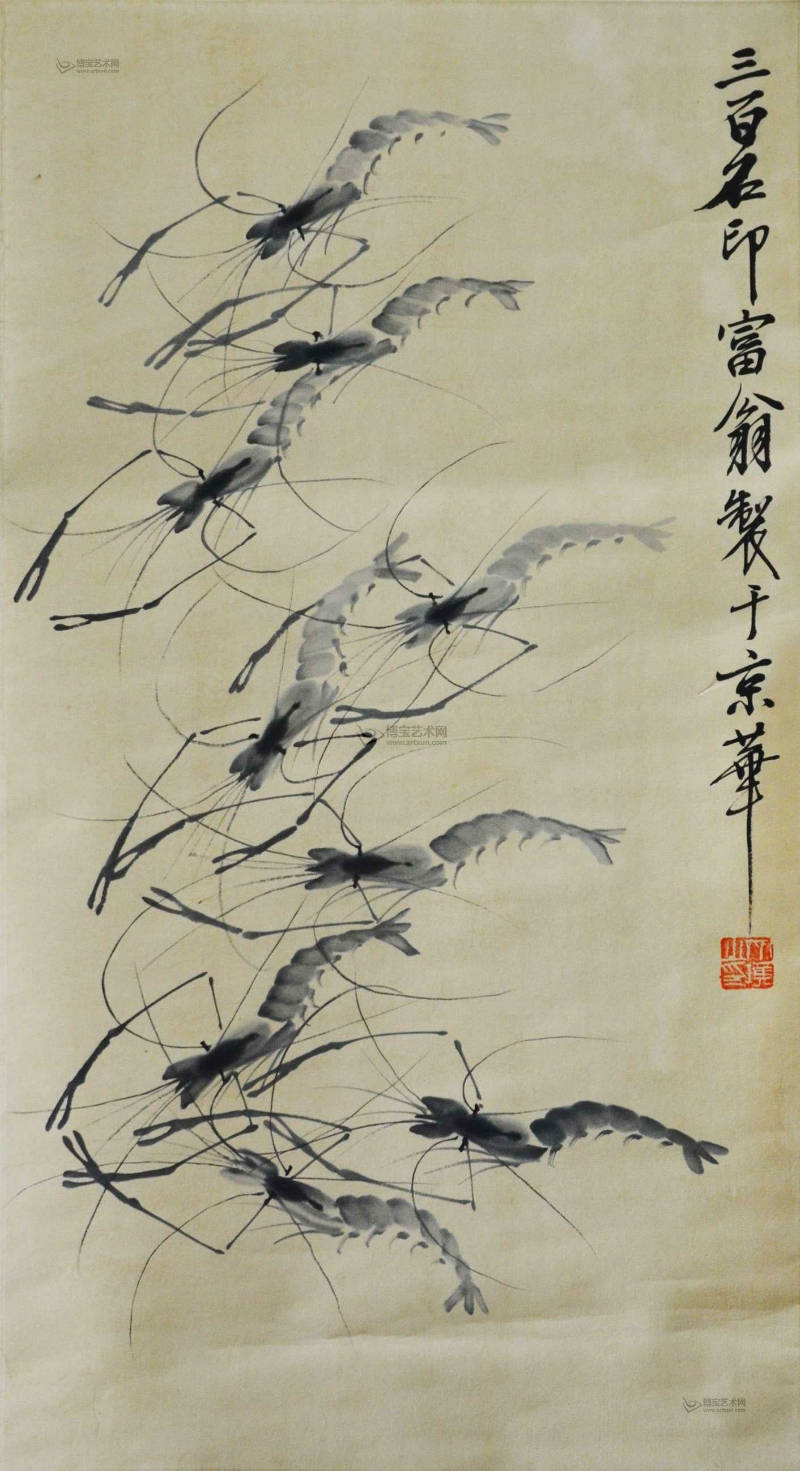 博宝艺术网
www.artxun.com
三百石印富翁製于京華
博宝艺术网
www.artxun.com
博宝艺术网
www.artxun.com